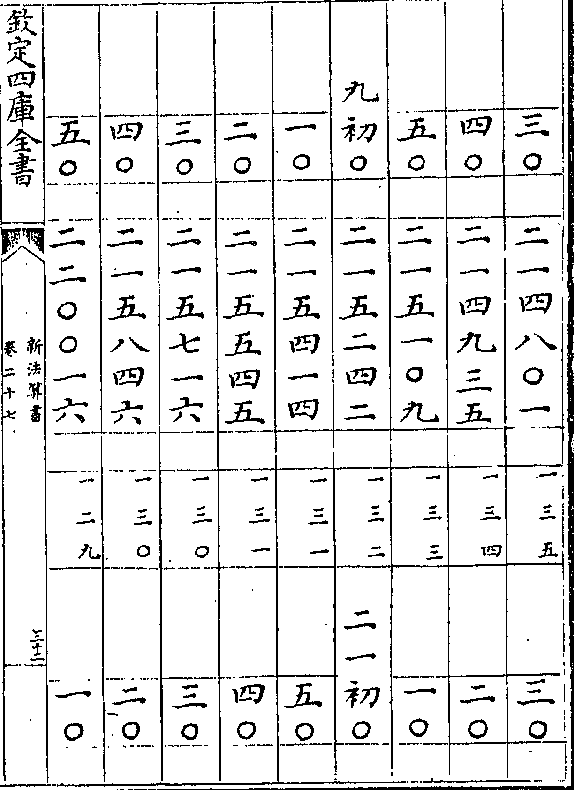 三〇 二一四八〇一 一三五 三〇
四〇 二一四九三五 一三四 二〇
五〇 二一五一〇九 一三三 一〇
九初〇 二一五二四二 一三二 二一初〇
一〇 二一五四一四 一三一 五〇
二〇 二一五五四五 一三一 四〇
三〇 二一五七一六 一三〇 三〇
四〇 二一五八四六 一三〇 二〇
五〇 二二〇〇一六 一二九 一〇
欽定四庫全書
新法算書
卷二十七
三十二